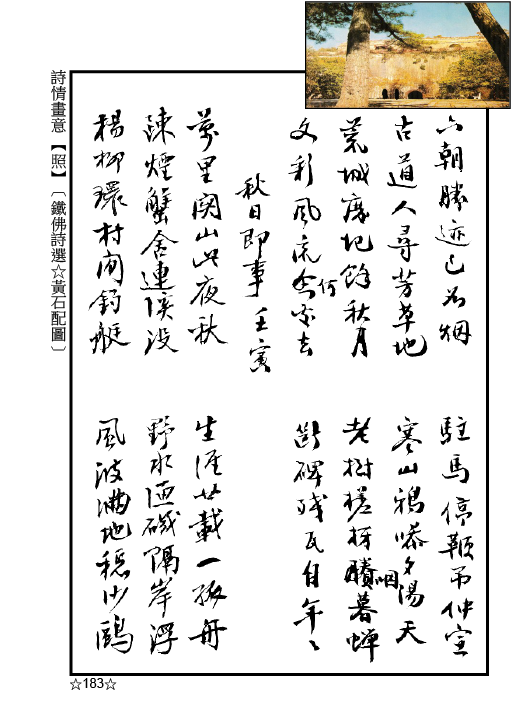 六朝勝迹已為烟
駐馬停鞭吊仲宣
古道人尋芳草地
寒山鴉噪夕陽天
荒城廢圮餘秋月
老樹槎枒賸咽暮蟬
文彩風流今何去
斷碑殘瓦自年々
秋日即事 壬寅
萬里関山此夜秋
生涯廿載一孤舟
疎煙蟹舍連溪没
野水磯隔岸浮
楊柳環村閑釣艇
風波滿地穏沙鷗
詩情畫意【照】〔鐵佛詩選☆黃石配圖〕
☆183☆